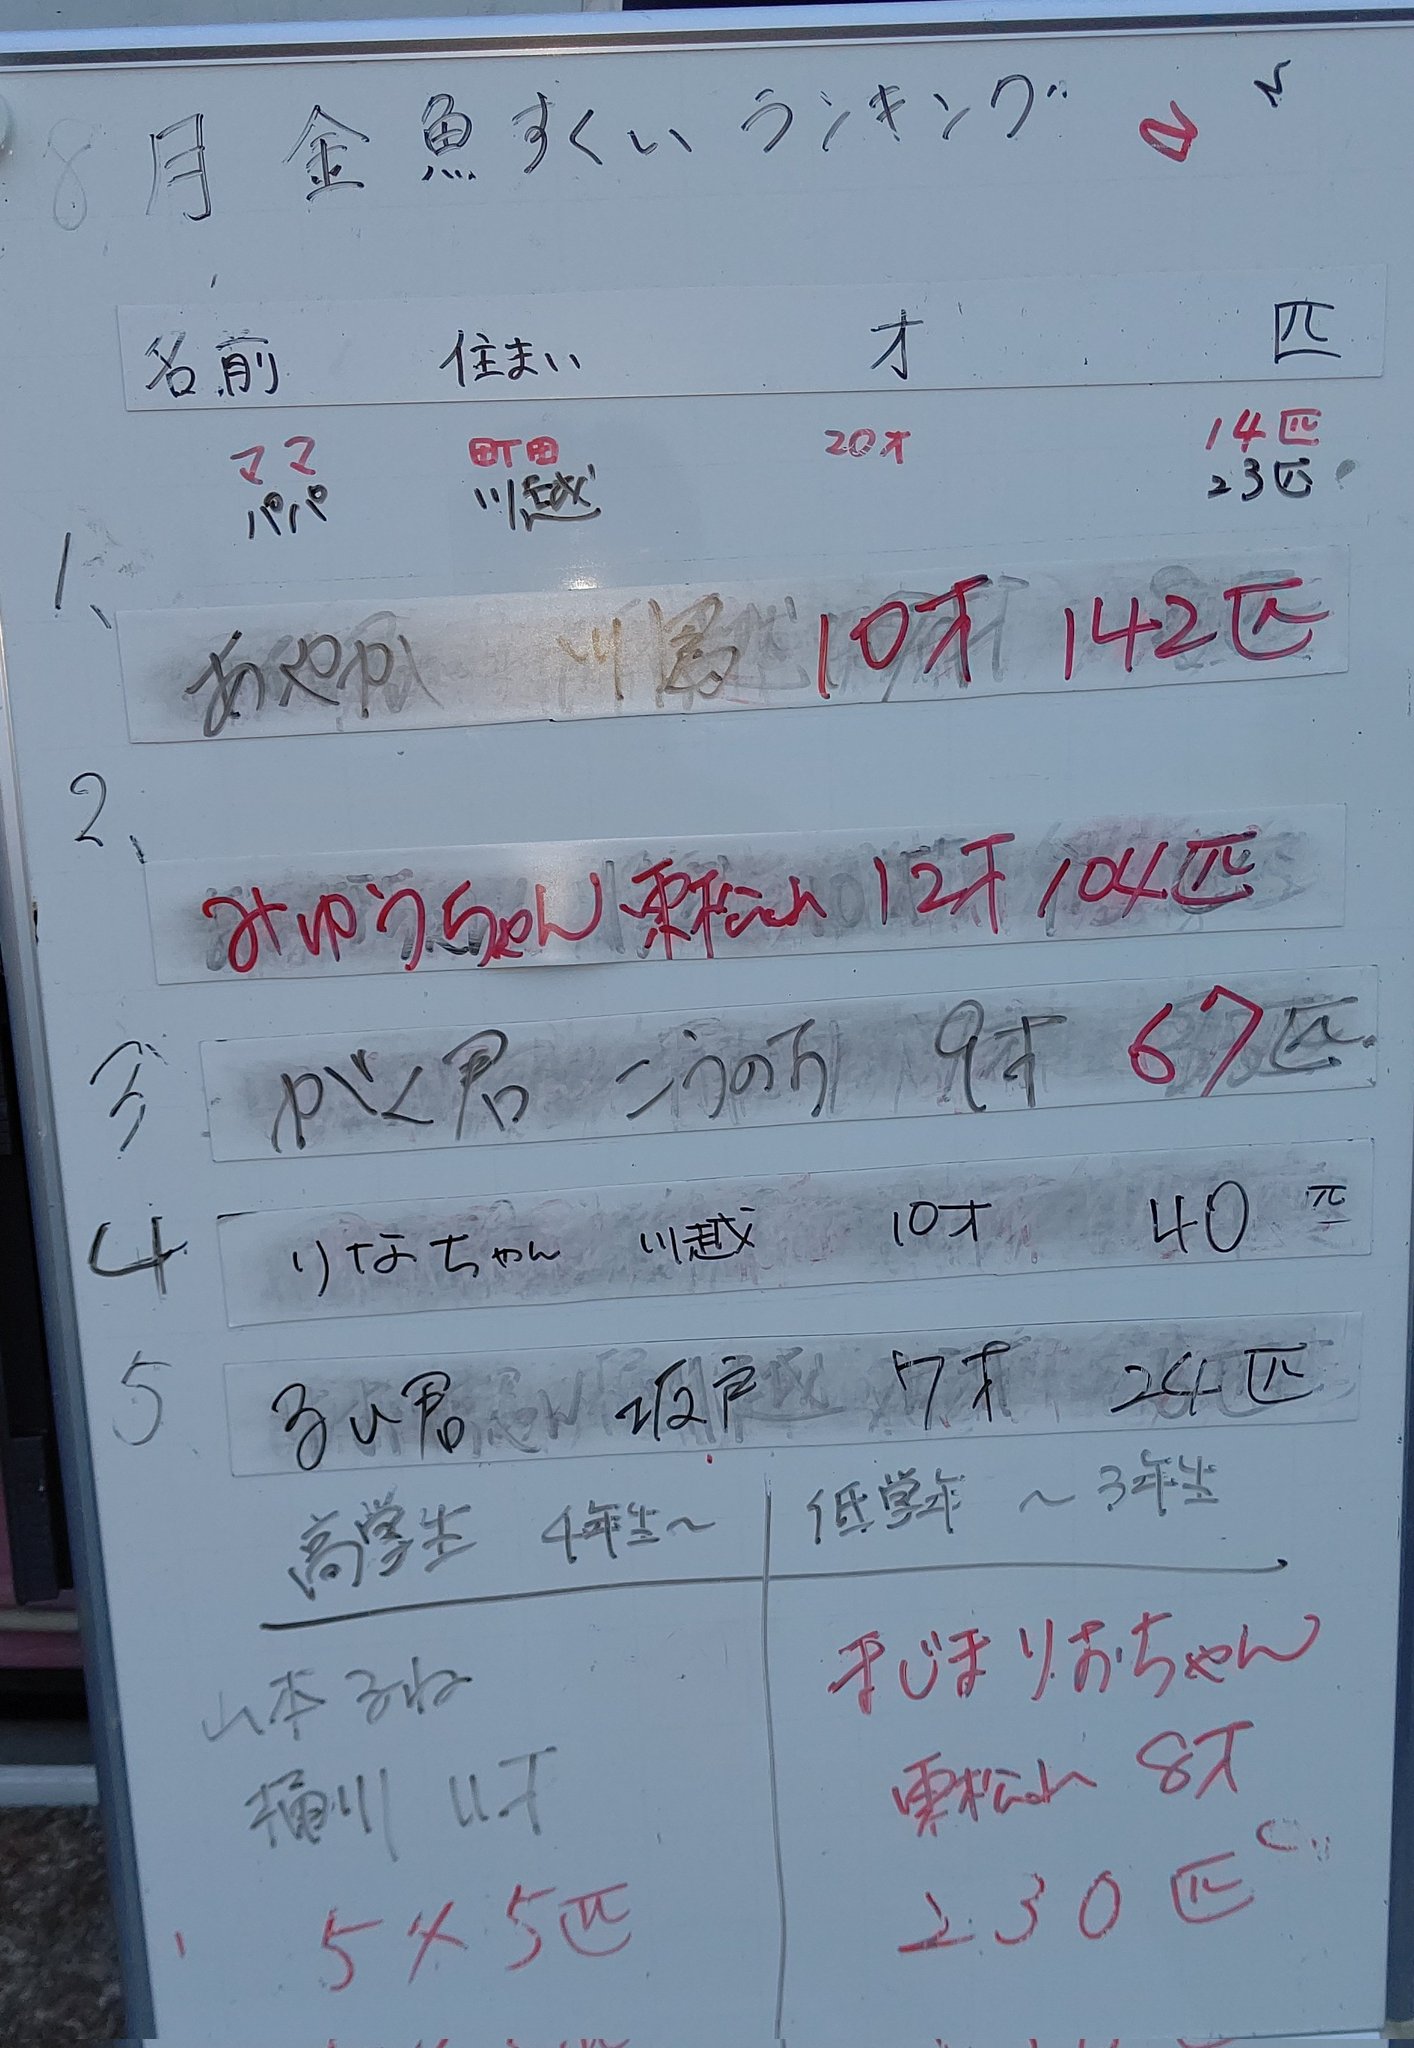 8月 金魚すくいランキング
名前 住まい 才 匹
ママ 町田 20才 14匹
パパ 川越 23匹
1、
あやか 川島 10才 142匹
2、
みゆうちゃん 東松山 12才 104匹
3 がく君 こうのす 9才 67匹
4 りなちゃん 川越 10才 40匹
5 るい君 坂戸 7才 24匹
高学生 4年生～
低学年 ～3年生
山本るね
桶川 11才
5×5匹
まじまりおちゃん
東松山 8才
230匹